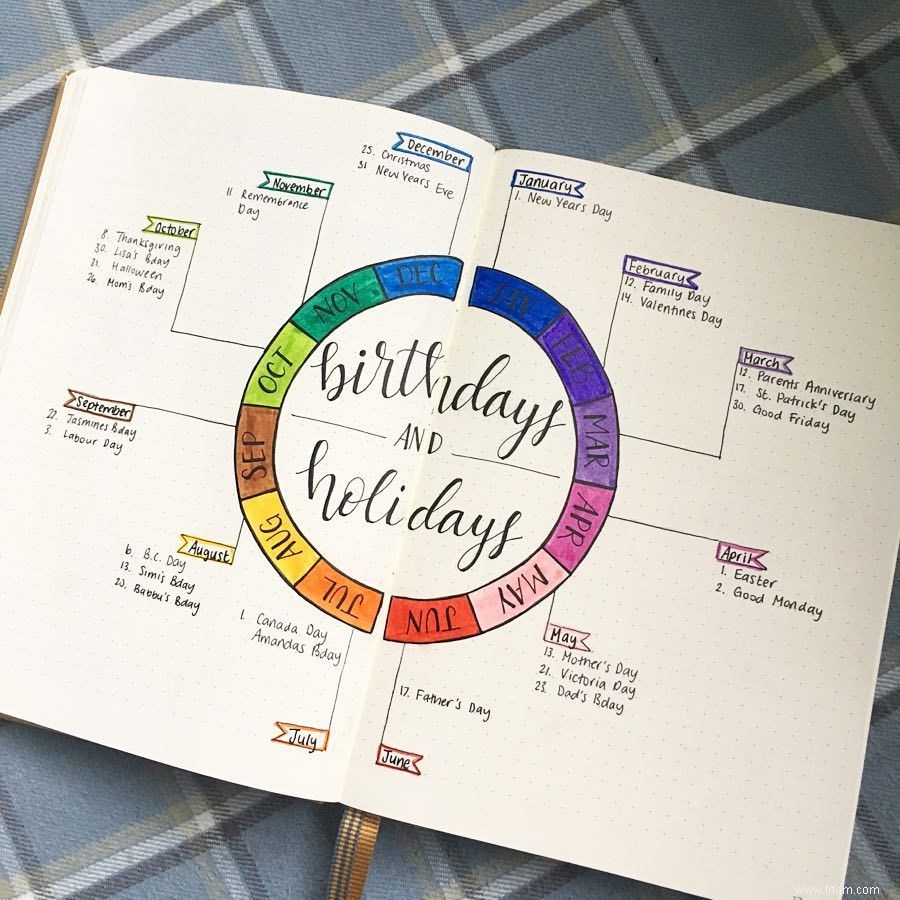 December
25. Christmas
31 New Years Eve
November
11 Remembrance
Day
October
8. Thanksgiving
30. Lisa's Bday
31. Halloween
26. Mom's Bday
September
22. Jasmines Bday
3. Labour Day
August
6. B.C. Day
13. Simi's Bday
20. Babbu's Bday
1. Canada Day
Amandas Bday
July
January
1. New Years Day
February
12. Family Day
14. Valentines Day
March
12. Parents Anniversary
17. St. Patrick's Day
30. Good Friday
April
1. Easter
2. Good Monday
May
13. Mother's Day
21. Victoria Day
23. Dad's Bday
17. Father's Day
June
JAN
FEB
MAR
APR
MAY
JUN
JUL
AUG
SEP
OCT
NOV
DEC
birthdays
AND
holidays
www.frfam.com